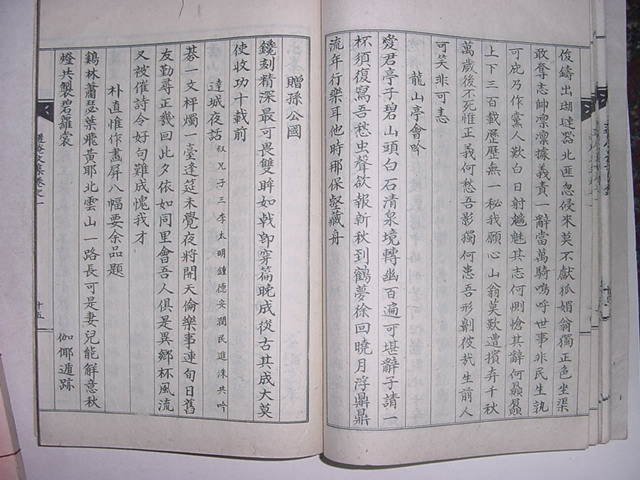 俊鑄出瑚璉器北匪忽侵來莫不獻狐媚翁獨正色坐渠
敢奪志帥凛凛據義責一辭當萬騎嗚呼世事非民生孰
可庇乃作虞人歎白日射魑魅其志何惻愴其辭何贔屭
上下三百載歷歷無一秘我願心山翁莫歎遭擯弃千秋
萬歲後不死惟正義何愁吾影獨何患吾形劓後我生前人
可矣非可志
龍山亭會吟
愛君亭子碧山頭白石清泉境轉幽百遍可堪辭子請一
杯須復寫吾愁虫聲欲報新秋到鶴夢徐回曉月浮鼎鼎
流年行樂耳他時那保壑藏舟
贈孫公國
鑱刻精深最可畏雙眸如戟卽穿篇晚成從古其成大莫
使收功十載前
達城夜話 叔兄子三李太明鍾德安潤民進洙共吟
碁一文枰燭一臺逢筵未覺夜將開天倫樂事連旬日舊
友勤尋正幾回此夕依如同里會吾人俱是異鄕杯風流
又被催詩令好句難成愧我才
朴直惟作畵屛八幅要余品題
鷄林蕭瑟葉飛黃耶北雲山一路長可是妻兒能解意秋
燈共製碧蘿裳
伽倻遁跡
十五